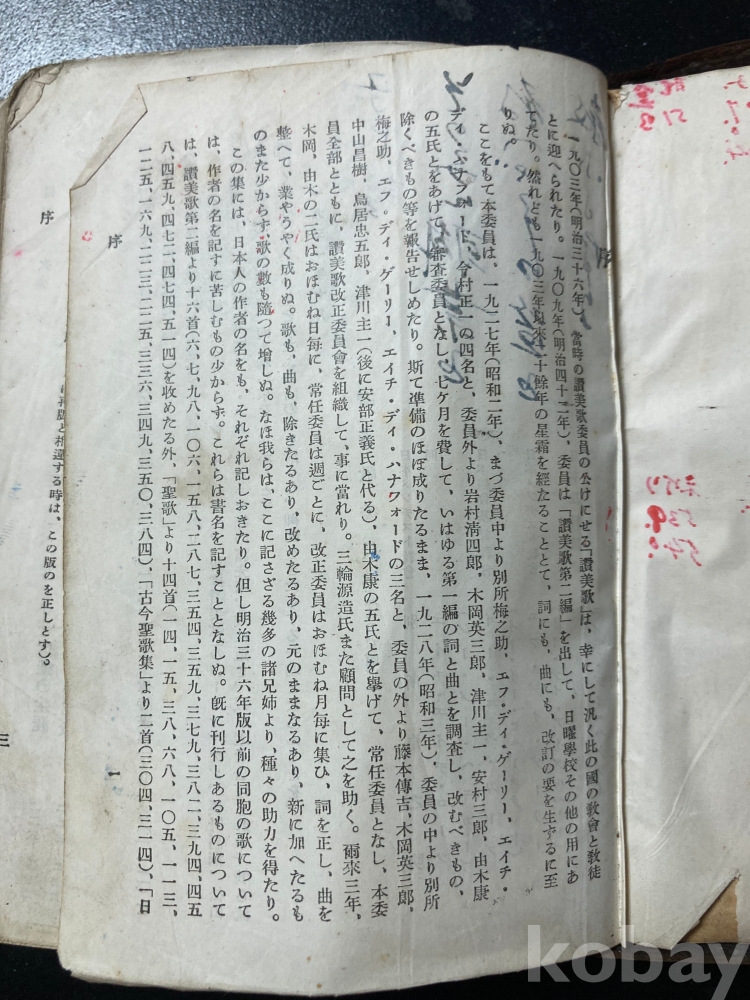 序
一九〇三年(明治三十六年)、當時の讃美歌委員の公けにせる「讃美歌」は、幸にして汎く此の國の敎會と敎徒
とに迎へられたり。一九〇九年(明治四十二年)、委員は「讃美歌第二編」を出して、日曜學校その他の用にあ
てたり。然れども一九〇三年以來二十餘年の星霜を經たることとて、詞にも、曲にも、改訂の要を生ずるに至
りぬ。
ここをもて本委員は、一九二七年(昭和二年)、まづ委員中より別所梅之助、エフ・ディ・ゲーリー、エイチ・
ディ・ハナフォード、今村正一の四名と、委員外より岩村清四郎、木岡英三郎、津川主一、安村三郎、由木康
の五氏とをあげて、審査委員となし、七ケ月を費して、いはゆる第一編の詞と曲とを調査し、改むべきもの、
除くべきもの等を報告せしめたり。斯て準備のほぼ成りたるまま、一九二八年(昭和三年)、委員の中より別所
梅之助、エフ・ディ・ゲーリー、エイチ・ディ・ハナフォードの三名と、委員の外より藤本傳吉、木岡英三郎、
中山昌樹、鳥居忠五郎、津川主一(後に安部正義氏と代る)、由木康の五氏とを擧げて、常任委員となし、本委
員全部とともに、讃美歌改正委員會を組織して、事に當れり。三輪源造氏また顧問として之を助く。爾來三年、
木岡、由木の二氏はおほむね日每に、常任委員は週ごとに、改正委員はおほむね月每に集ひ、詞を正し、曲を
整へて、業やうやく成りぬ。歌も、曲も、除きたるあり、改めたるあり、元のままなるあり、新に加へたるも
のまた少からず、歌の數も隨つて增しぬ。なほ我らは、ここに記さざる幾多の諸兄姉より、種々の助力を得たり。
この集には、日本人の作者の名をも、それぞれ記しおきたり。但し明治三十六年版以前の同胞の歌について
は、作者の名を記すに苦しむもの少からず。これらは書名を記すこととなしぬ。旣に刊行しあるものについて
は、讃美歌第二編より十六首(六、七、九八、一〇六、一五八、二八七、三五四、三五九、三七九、三八二、三九四、四五
八、四五九、四七二、四七四、五一四)を收めたる外、「聖歌」より十四首(一四、一五、三八、六八、一〇五、一一三、
一二五、一六九、二二三、二二五、三三六、三四九、三五〇、三八四)、「古今聖歌集」より二首(三〇四、三一四)、「日
序
一
序
と相違する時は、この版のを正しとす)。
三
kobay